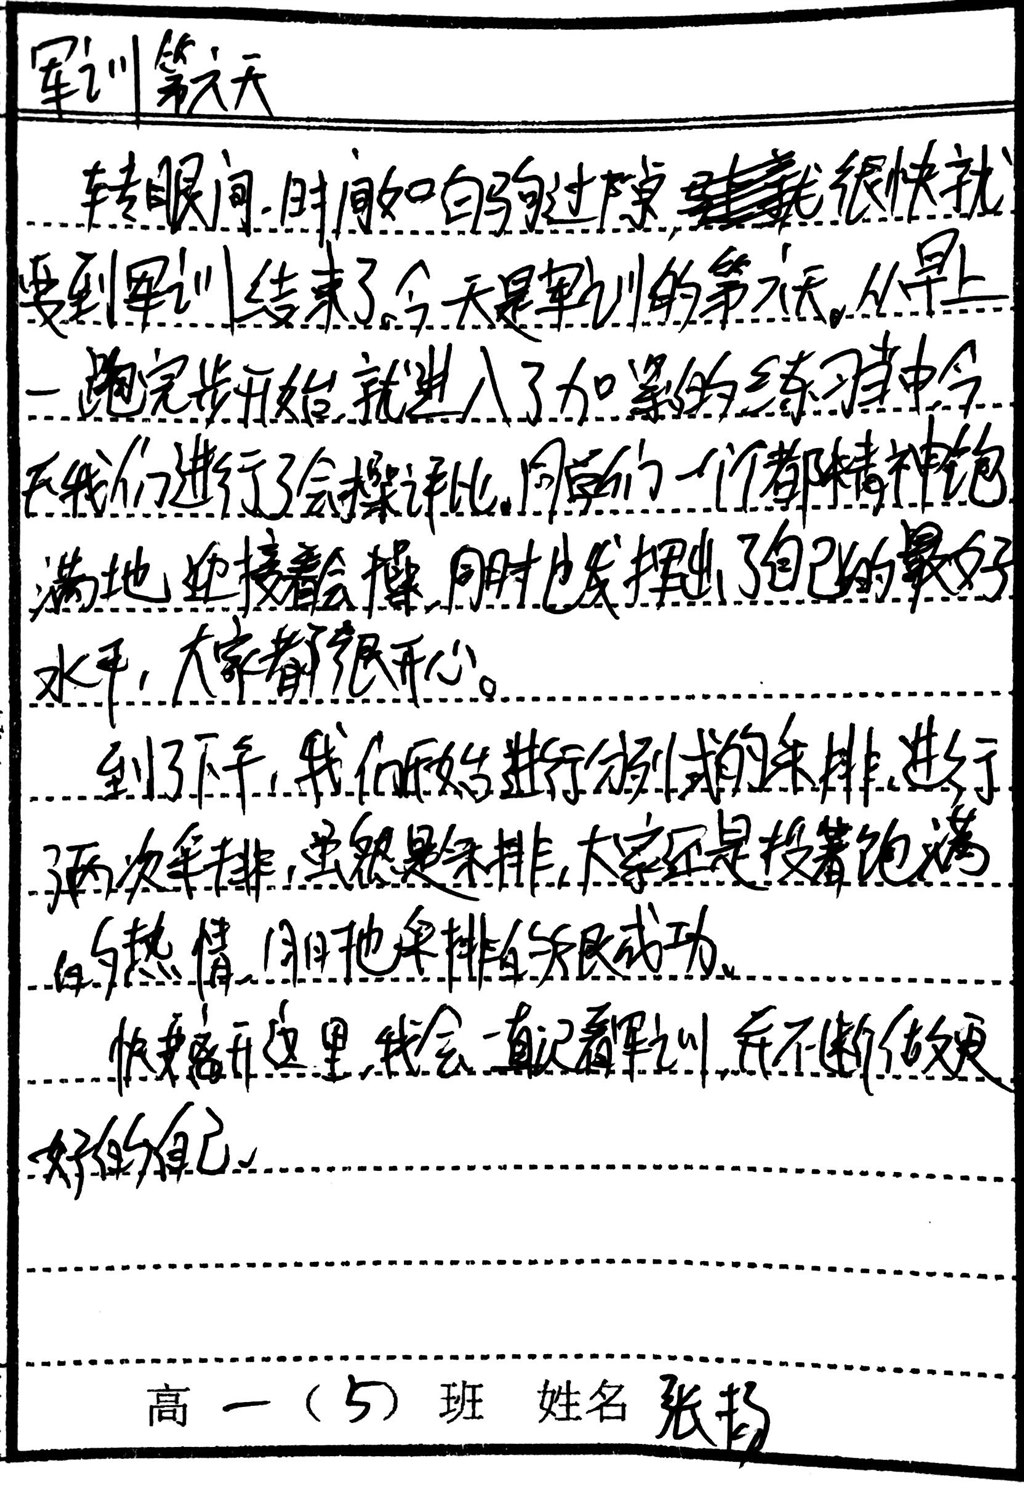 军训第六天
转眼间，时间如白驹过隙，很快就
要到军训结束了。今天是军训的第六天。从早上
一跑完步开始，就进入了加紧的练习当中，今
天我们进行了会操评比。同学们一个个都精神饱
满地迎接着会操，同时也发挥出了自己的最好
水平，大家都很开心。
到了下午，我们开始进行分列式的采排，进行
了两次采排，虽然是采排，大家还是投着饱满
的热情，同时也采排的很成功。
快要离开这里，我会一直记着军训，并不断做更
好的自己。
高一（5）班 姓名 张扬